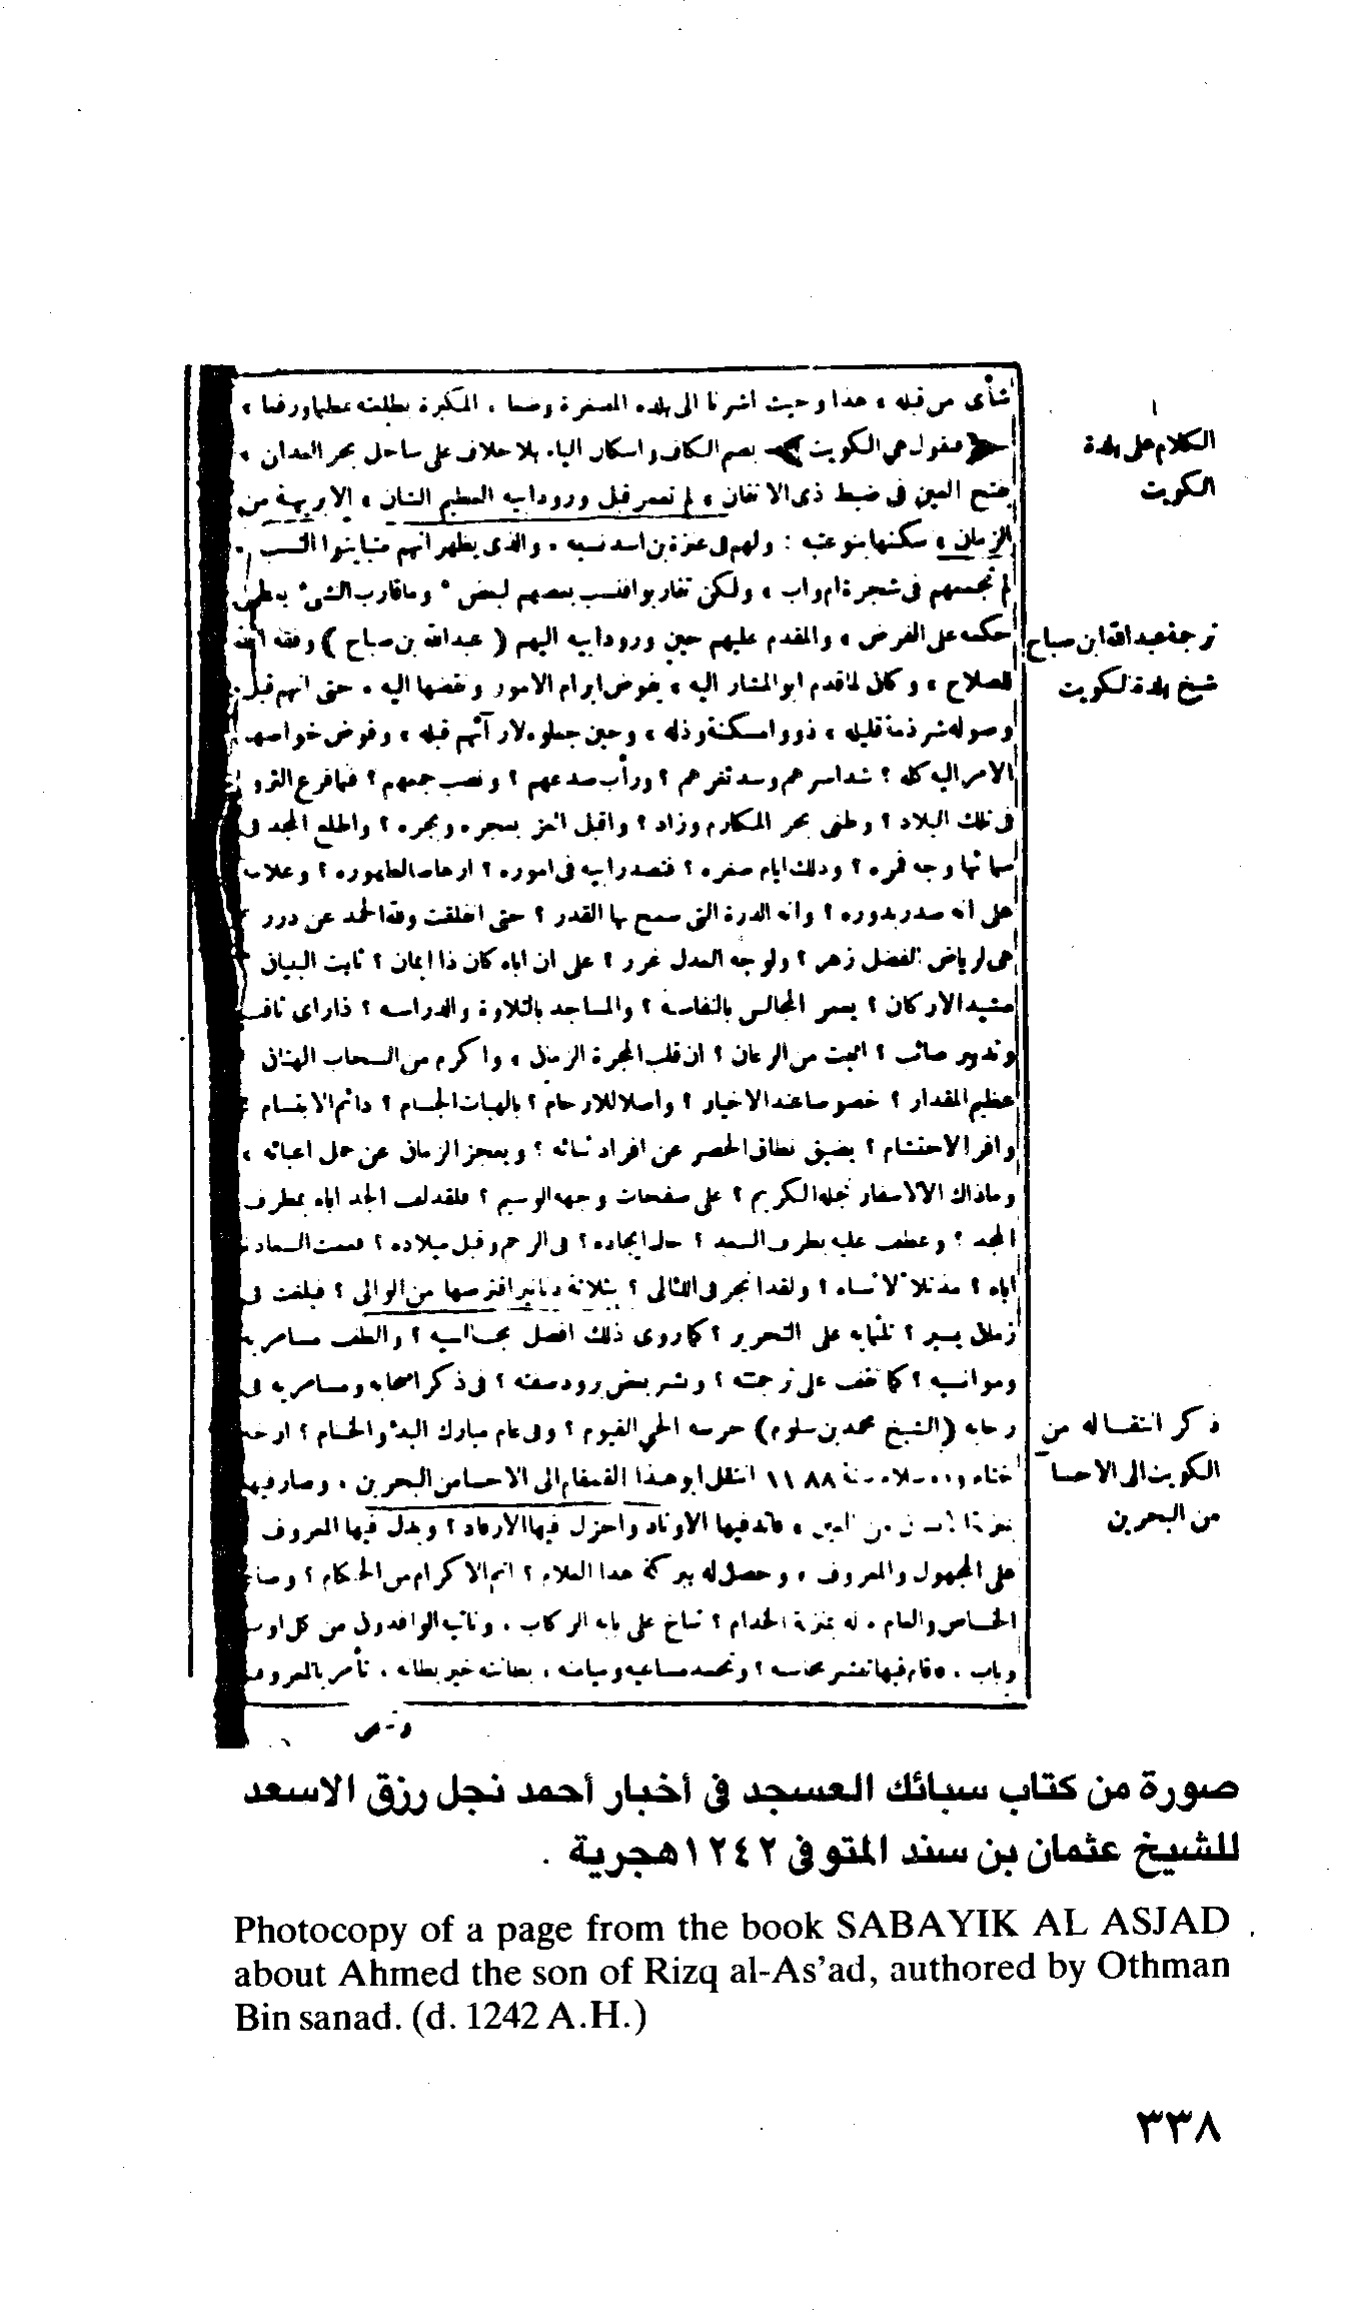 شأى من قبله ، هذا وحيث أشرنا الى بلده المصغرة وضعا ، المكبرة بطلعته عظما ورفعا ،
الكلام على بلدة
الكويت
فنقول هى الكويت بضم الكاف واسكان الياء بلا خلاف على ساحل بحر العدان ،
بفتح العين فى ضبط ذى الاتقان ، لم تعمر قبل ورود ابيه العظيم الشان ، الا بريهة من
الزمان ، سكنها بنو عتبه : ولهم فى عنزة بن اسد نسبه ، والذى يظهر انهم متباينوا النسب ،
لم تجمعهم فى شجرة ام واب ، ولكن تقاربوا فنسب بعضهم لبعض ، وما قارب الشئ يعطى
ترجمة عبد الله ابن صباح
شيخ بلدة الكويت
حكمه على الفرض ، والمقدم عليهم حين ورود ابيه اليهم ( عبد الله بن صباح ) وفقه الله
للصلاح ، وكان لما قدم ابو المشار اليه ، يفوض ابرام الامور ونقضها اليه ، حتى انهم قبل
وصوله شرذمة قليله ، ذووا مسكنة وذله ، وحين جعلوه لارآئهم قبله ، وفوض خواصهم
الامر اليه كله ؟ شد اسرهم وسد ثغرهم ؟ ورأب صدعهم ؟ ونصب جمعهم ؟
فى تلك البلاد ؟ وطمى بحر المكارم وزاد ؟ واقبل العز بعجره وبجره ؟ واطلع المجد فى
سمائها وجه قمره ؟ وذلك ايام صغره ؟ فتصدر ابيه فى اموره ؟ ارهاصا لظهوره ؟
على انه صدر بدوره ؟ وانه الدرة التى سمح بها القدر ؟ حتى انفلقت ولله الحمد عن درر
هى لرياض الفضل زهر ؟ ولوجه العدل غرر ؟ على ان اباه كان ذا ايمان ؟ ثابت البنيان
مشيد الاركان ؟ يعمر المجالس بالنفاسه ؟ والمساجد بالتلاوة والدراسه ؟ ذا راى ثاقب
وتدبير صائب ؟ اثبت من الرعان ؟ ان قلب المجرة الزمان ، واكرم من السحاب الهتان
عظيم المقدار ؟ خصوصا عند الاخيار ؟ واصلا للارحام ؟ بالهبات الجسام ؟ دائم الابتسام
وافر الاحتشام ؟ يضيق نطاق الحصر عن افراد ثنائه ؟ ويعجز الزمان عن حمل اعبائه ،
وما ذاك الا لاسفار نجله الكريم ؟ على صفحات وجهه الوسيم ؟ فلقد لف الجد اباه بمطرف
المجد ؟ وعطف عليه بطرف السعد ؟ حال ايجاده ؟ فى الرحم وقبل ميلاده ؟
اباه ؟ ولقد اتجر فى اللئالى ؟ بثلاثة دنانير اقترضها من الوالى ؟ فبلغت فى
زمان يسير ؟ على التحرير ؟ كما روى ذلك افضل مجالسيه ؟ والطف مسامريه
وموانسيه ؟ كما تقف على ترجمته ؟ ونشر بعض برود صفته ؟ فى ذكر اصحابه ومسامريه فى
ذكر انتقاله من
الكويت الى الاحسا
من البحرين
رحابه (الشيخ محمد بن سلوم) حرسه الحى القيوم ؟ وفى عام مبارك البدء والختام ؟
سنة ١١٨٨ انتقل ابو هذا القمقام الى الاحسا من البحرين ، وصار فيها
فيها الاوتاد واجزل فيها الارفاد ؟ وبذل فيها المعروف
على المجهول والمعروف ، وحصل له ببركة هذا الغلام ؟ اتم الاكرام من الحكام ؟
الخاص والعام ، له بمنزلة الخدام ؟ تناخ على بابه الركاب ، الوافدون من كل
وباب ، فيها تنشر محاسنه ؟ وتحمد مساعيه وميامنه ، بطانته خير بطانه ، تأمر بالمعروف
صورة من كتاب سبائك العسجد فى أخبار أحمد نجل رزق الاسعد
للشيخ عثمان بن سند المتوفى ١٢٤٢هجرية .
Photocopy of a page from the book SABAYIK AL ASJAD
about Ahmed the son of Rizq al-As'ad, authored by Othman
Bin sanad. (d. 1242 A.H.)
٣٣٨